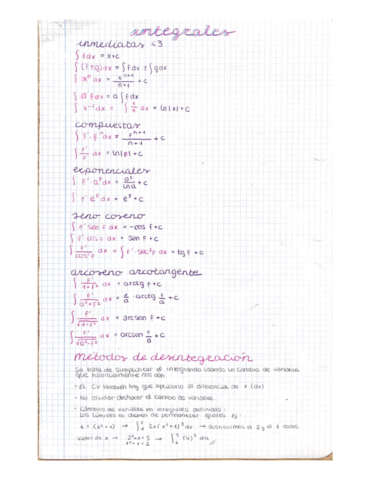 integrales
inmediatas <3
∫ f dx = x+c
∫ (f±g)dx = ∫ f dx ± ∫ g dx
∫ xⁿ dx = xⁿ⁺¹/n+1 + c
∫ a f dx = a ∫ f dx
∫ x⁻¹ dx = ∫ 1/x dx = ln|x| + c
compuestas
∫ F'·Fⁿ dx = Fⁿ⁺¹/n+1 + c
∫ F'/F dx = ln|F| + c
exponenciales
∫ F'·aᶠ dx = aᶠ/ln a + c
∫ F'·eᶠ dx = eᶠ + c
seno coseno
∫ F' sen F dx = -cos F + c
∫ F' cos F dx = sen F + c
∫ F'/cos²F dx = ∫ F'·sec²F dx = tg F + c
arcoseno arcotangente
∫ F'/1+F² dx = arctg F + c
∫ F'/a²+F² dx = arctg F/a + c
dx = arcsen F + c
dx = arcsen F/a + c
métodos de desintegración
Se trata de simplificar el integrando usando un cambio de variable
que habitualmente nos dan.
- El CV también hay que aplicarlo al diferencial de x (dx)
- No olvidar deshacer el cambio de variable.
- Cambios de variable en integrales definidas:
Los límites de permanecer iguales Ej:
sustituimos el 2 y el 1 como
valor de x →